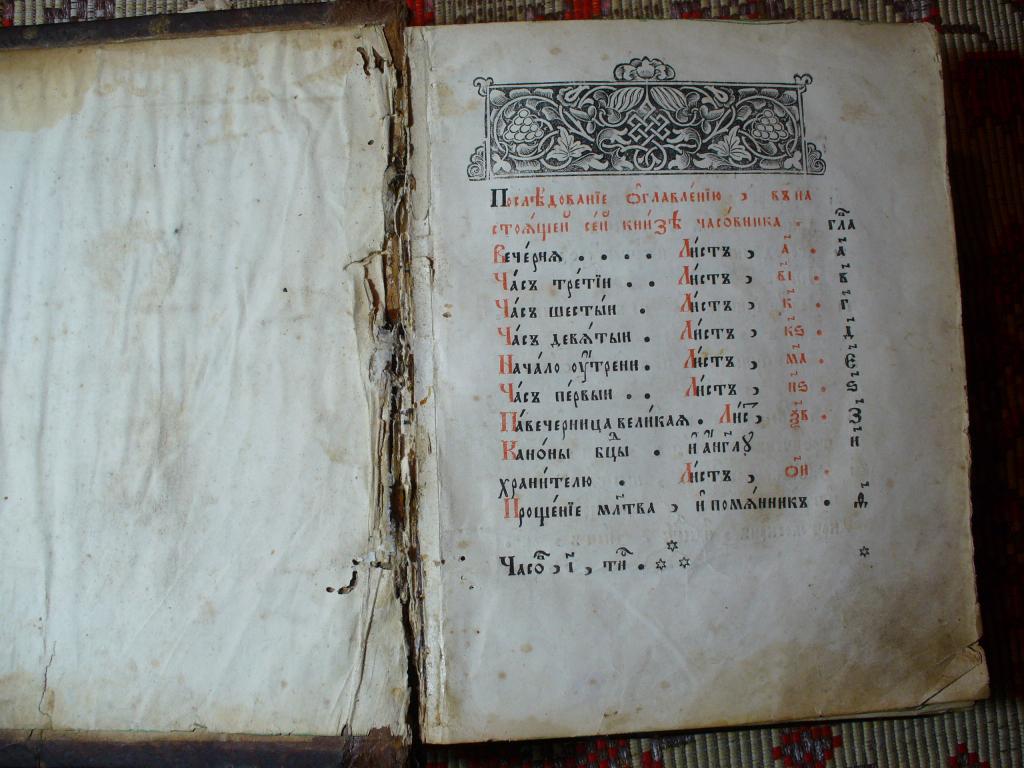 Послѣ́дованїе ѡ҆главле́нїю , въ на
стоѧ́щей се́й кни́зѣ часо́вника . гл҃а
Вече́рнѧ . . . . Ли́стъ , а҃ . а҃
Ча́съ тре́тїи . . Ли́стъ , в҃і . в҃
Ча́съ шесты́и . Ли́стъ , к҃ . г҃
Ча́съ девѧ́тыи . Ли́стъ , к҃ѕ . д҃
Нача́ло оу҆́трени . Ли́стъ , м҃а . є҃
Ча́съ пе́рвыи . . Ли́стъ , н҃ѕ . ѕ҃
Па́вечерница вели́каѧ . Ли́с , ѯ҃в . з҃
Кано́ны бц҃ы . и҆ а҆́нг҃лꙋ и҃
храни́телю . Ли́стъ , ѻ҃и .
Проще́нїе мл҃тва , и҆ помѧ́нникъ . ѳ҃